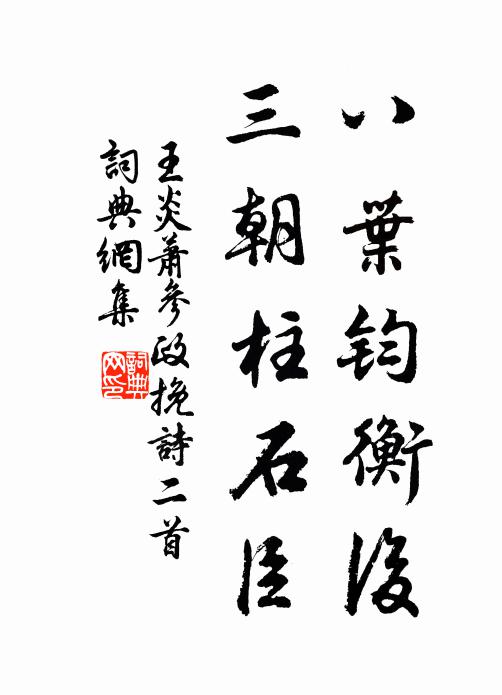 八葉鈞衡後
三朝柱石臣
王炎蕭參政挽詩二首
詞典網集
詞典網印